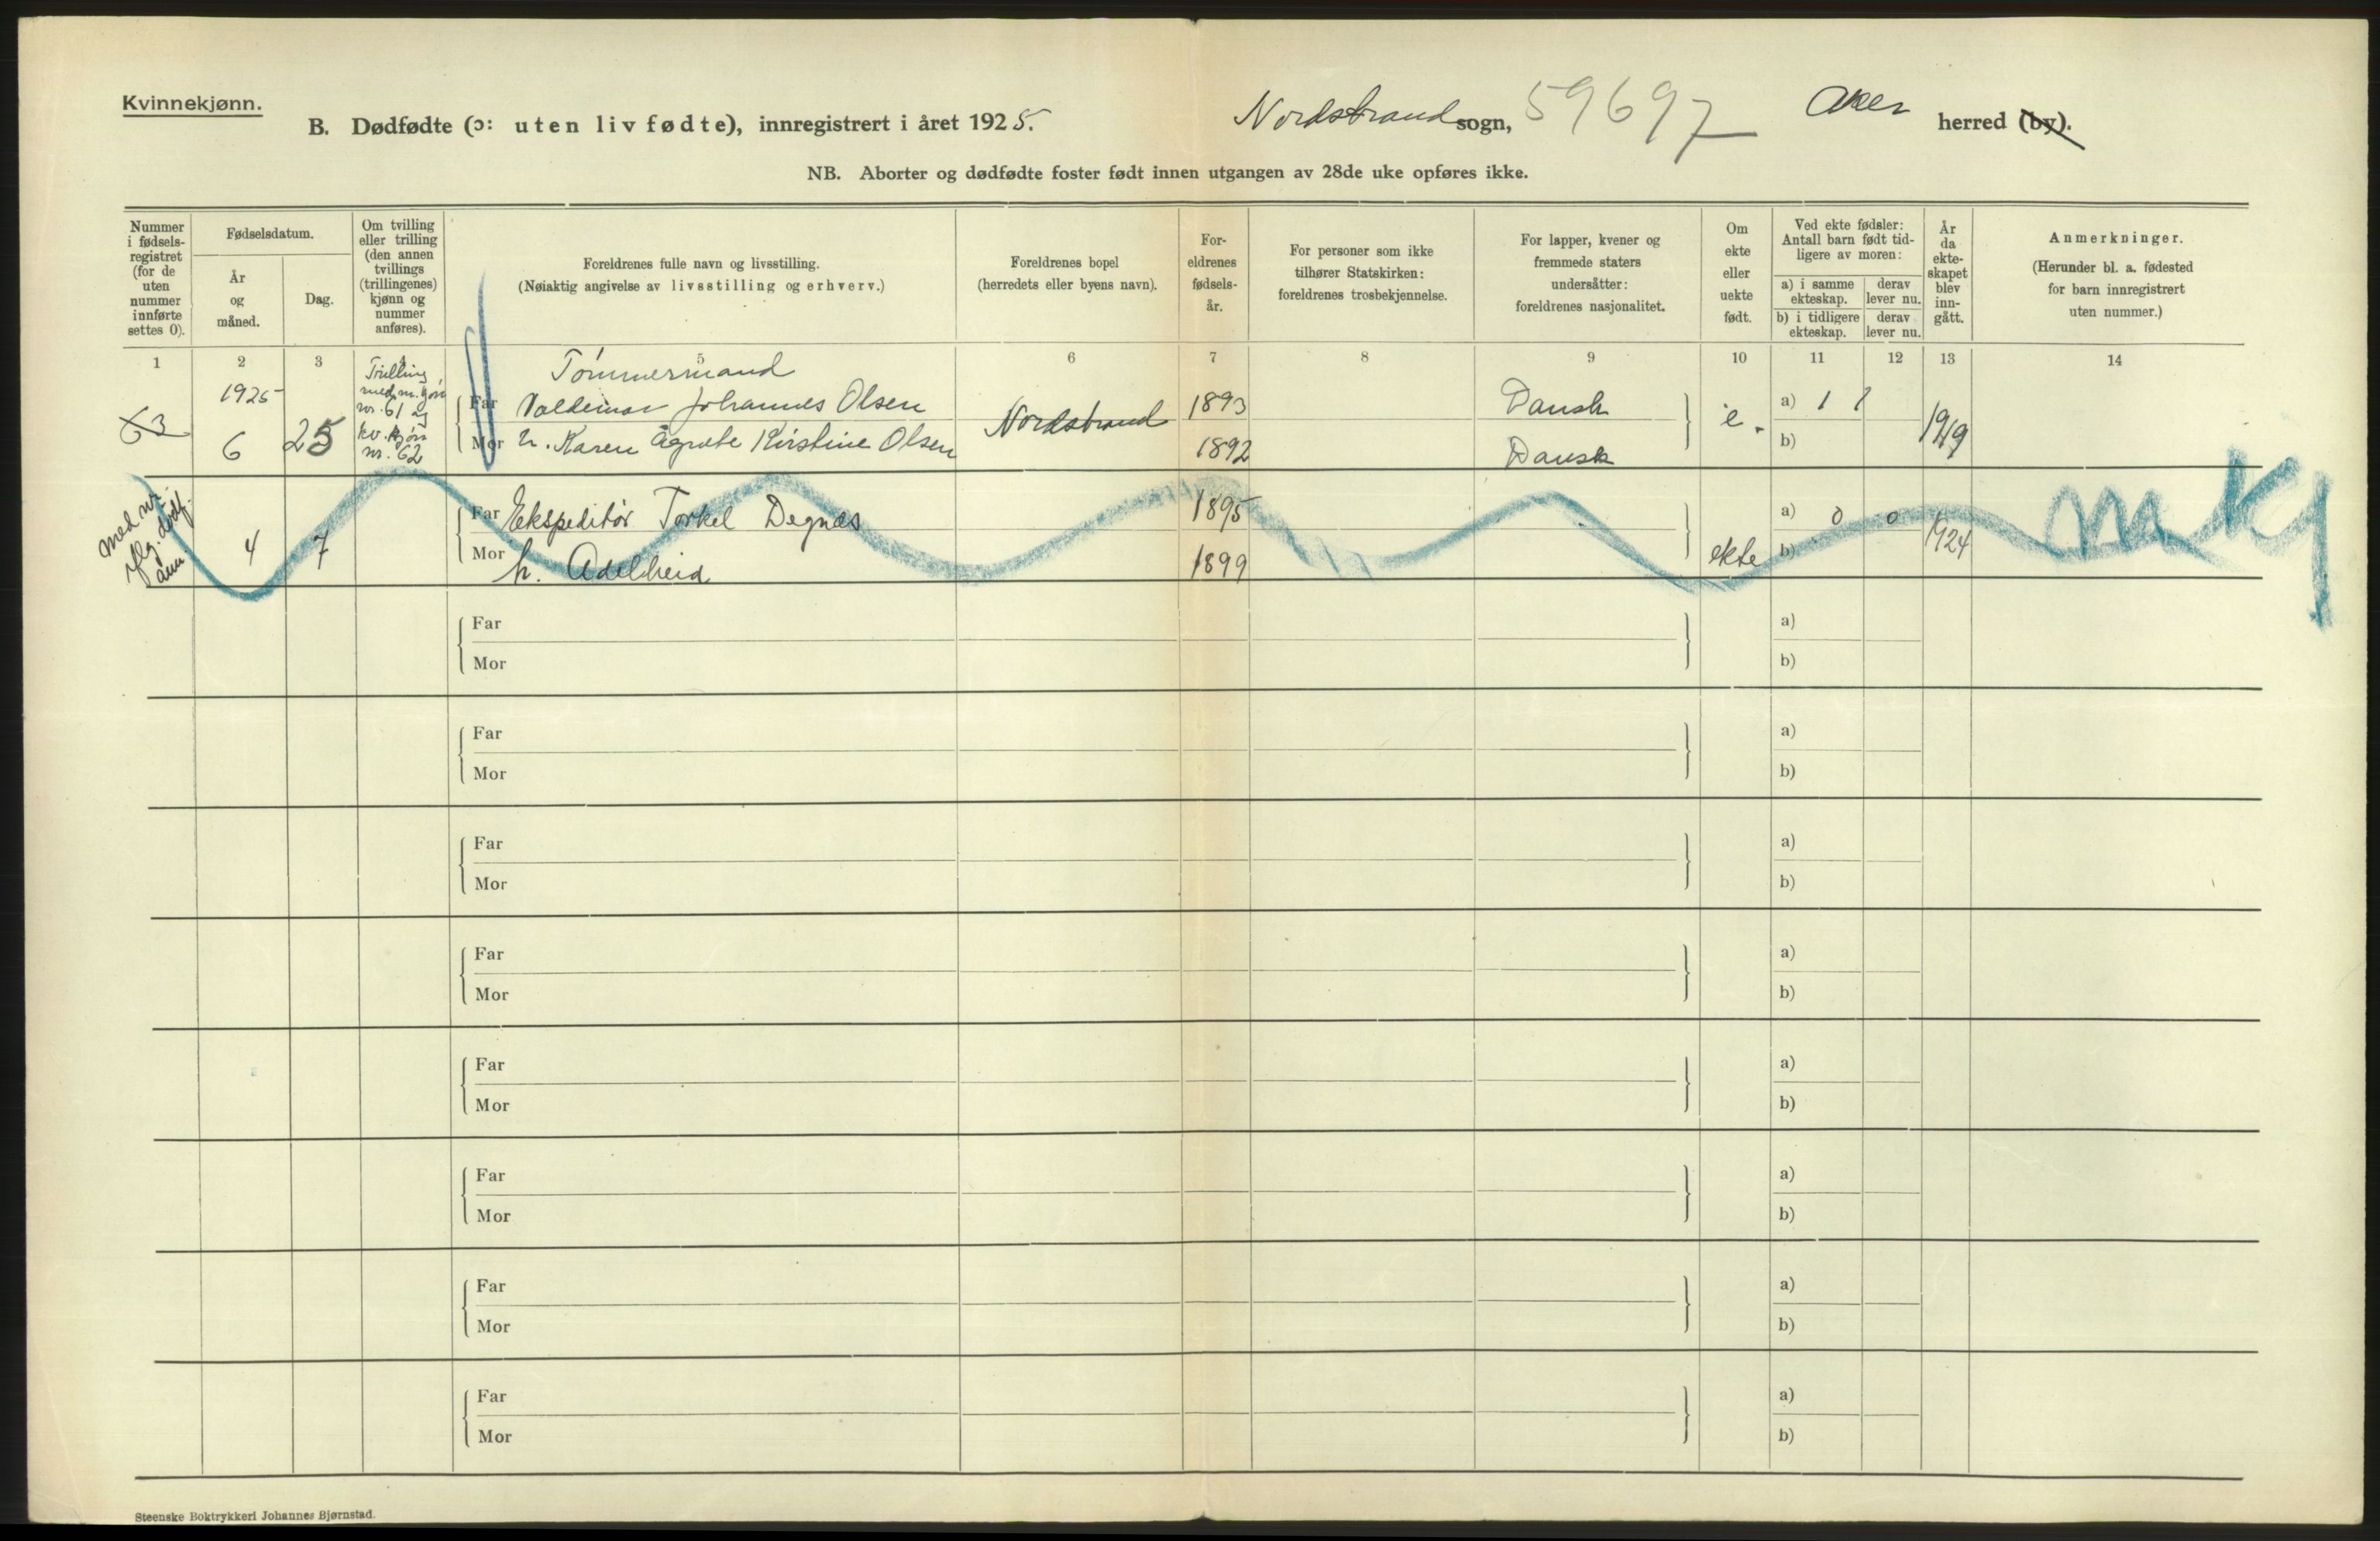 Kvinnekjønn.
B. Dødfødte (ɔ: uten liv fødte), innregistrert i året 1925. Nordstrand sogn, 59697 Aker herred (by).
NB. Aborter og dødfødte foster født innen utgangen av 28de uke opføres ikke.
Nummer i fødsels-registret (for de uten nummer innførte settes 0).
Fødselsdatum.
År og måned.
Dag.
Om tvilling eller trilling (den annen tvillings (trillingenes) kjønn og nummer anføres).
Foreldrenes fulle navn og livsstilling.
(Nøiaktig angivelse av livsstilling og erhverv.)
Foreldrenes bopel (herredets eller byens navn).
For-eldrenes fødsels-år.
For personer som ikke tilhører Statskirken: foreldrenes trosbekjennelse.
For lapper, kvener og fremmede staters undersåtter: foreldrenes nasjonalitet.
Om ekte eller uekte født.
Ved ekte fødsler: Antall barn født tid-ligere av moren:
a) i samme ekteskap. derav lever nu.
b) i tidligere ekteskap. derav lever nu.
År da ekte-skapet blev inn-gått.
Anmerkninger.
(Herunder bl. a. fødested for barn innregistrert uten nummer.)
1 2 3 4 5 6 7 8 9 10 11 12 13 14
63
1925
6 25
Trilling
med m. kjøn
nr. 61 og
kv. kjøn
nr. 62
Tømmermand
Far Valdemar Johannes Olsen
Mor h. Karen Agnete Kirstine Olsen
Nordstrand
1893
1892
Dansk
Dansk
e.
a) 1 1
b)
1919
4 7
Far Ekspeditør Torkel Degnæs
Mor h. Adelheid
1895
1899
ekte
a) 0 0
b)
1924
m kj
Far a)
Mor b)
Far a)
Mor b)
Far a)
Mor b)
Far a)
Mor b)
Far a)
Mor b)
Far a)
Mor b)
Far a)
Mor b)
Far a)
Mor b)
Steenske Boktrykkeri Johannes Bjørnstad.